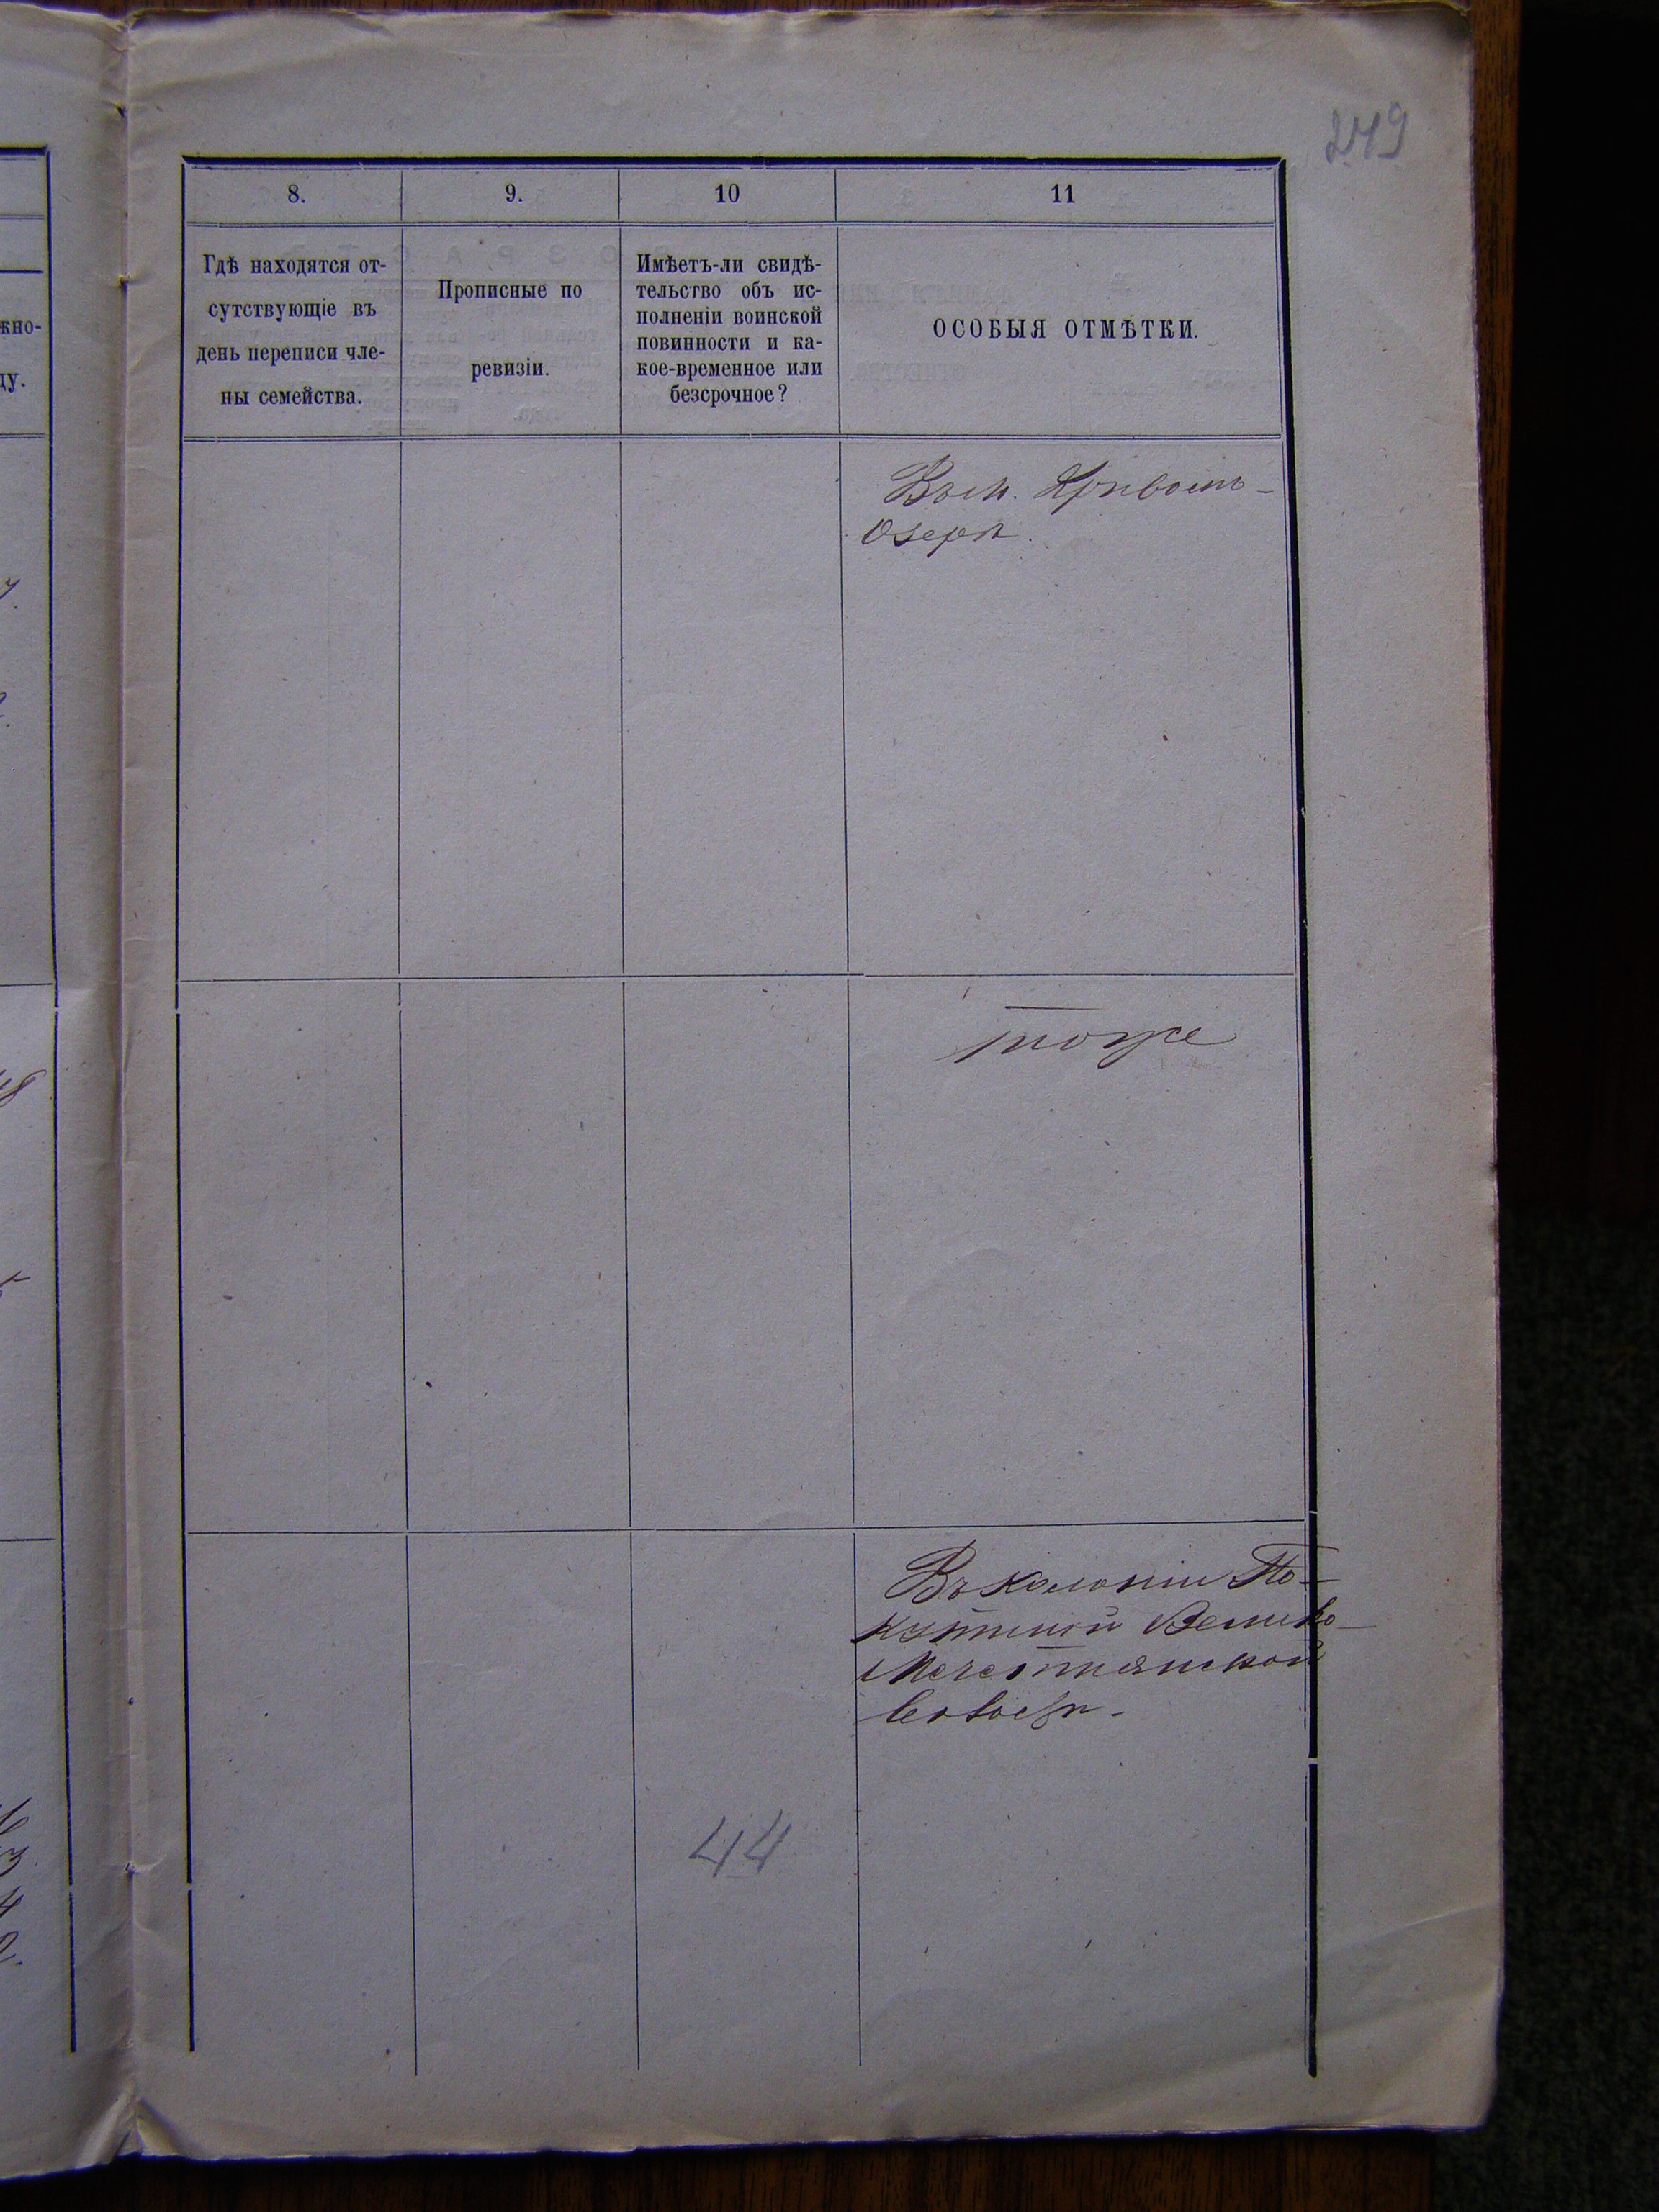 249
8.
9.
10
11
Гдѣ находятся от-
сутствующіе въ
день переписи чле-
ны семейства.
Прописные по
ревизіи.
Имѣетъ-ли свидѣ-
тельство объ ис-
полненіи воинской
повинности и ка-
кое-временное или
безсрочное?
ОСОБЫЯ ОТМѢТКИ.
жно-
ду.
Въ м. Кривомъ-
Озерѣ.
тоже
Въ колоніи По-
кутиной Велико-
Мечетнянской
волости.
44